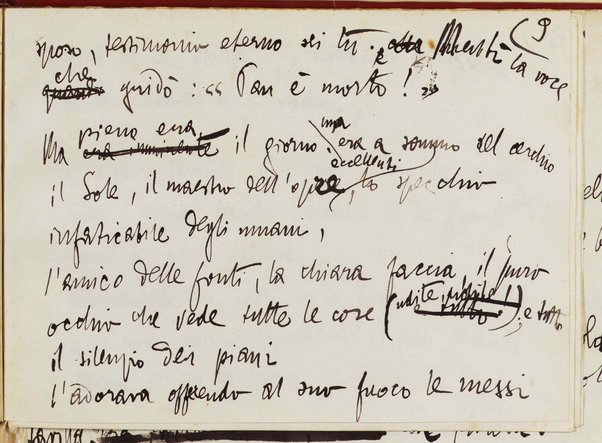 9
sposo, testimonio eterno sei tu. e Mentì la voce
che
quando gridò: << Pan è morto! >>
piena era
Ma era imminente il giorno, ma era a sommo del cerchio
eccellenti
il Sole, il maestro dell'opre, lo specchio
infaticabile degli umani,
l'amico delle fonti, la chiara faccia il puro
occhio che vede tutte le cose (udite, udite!) tutto, e tutto
il silenzio dei piani
l'adorava offerendo al suo fuoco le messi